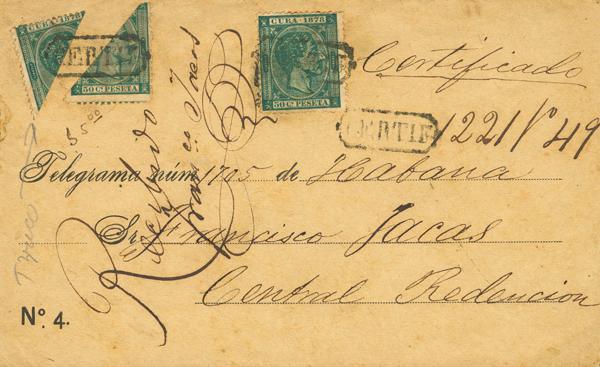 CURA 1878
50 Cs PESETA
CUBA 1878
50 Cs PESETA
CERTIF
Certificado
CERTIF
1221
49
Telegrama núm 1705 de Habana
Sr. Francisco Jacas
Central Redencion
Nº. 4.
Recibido
Francisco Jacas